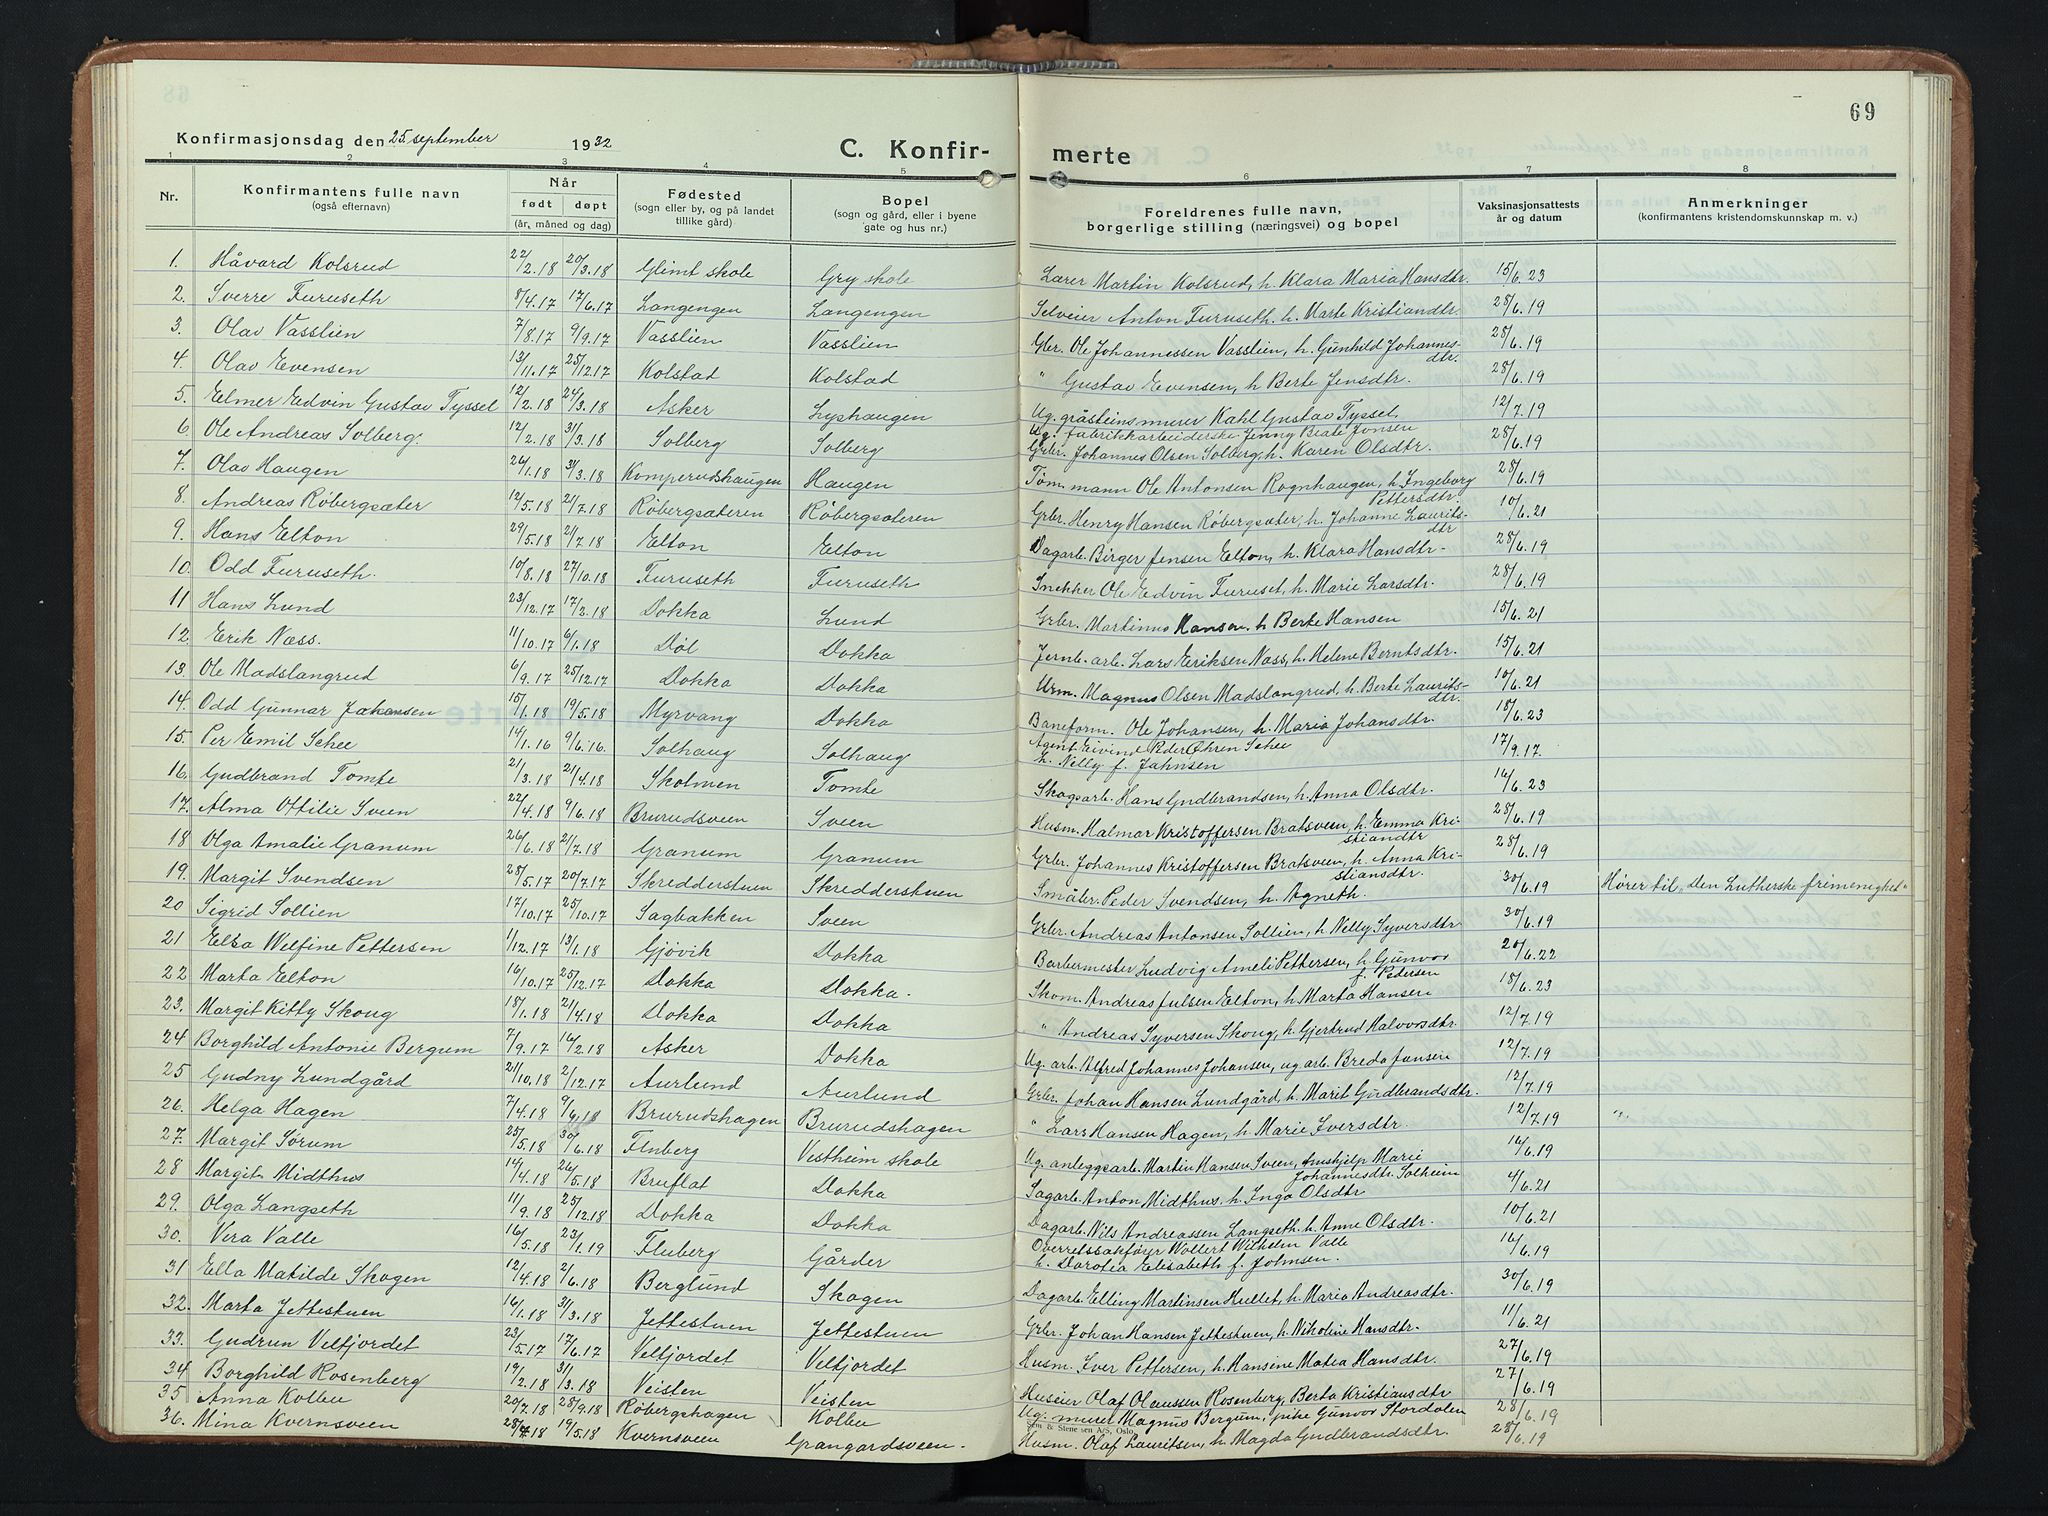 69
Konfirmasjonsdag den 25. september 1932
C. Konfir-
merte
1 2 3 4 5 6 7 8
Nr. Konfirmantens fulle navn Når Fødested Bopel Foreldrenes fulle navn, Vaksinasjonsattests Anmerkninger
(også efternavn) født døpt (sogn eller by, og på landet (sogn og gård, eller i byene borgerlige stilling (næringsvei) og bopel år og datum (konfirmantens kristendomskunnskap m. v.)
(år, måned og dag) tillike gård) gate og hus nr.)
1. Håvard Kolsrud 22/2.18 20/3.18 Glimt skole Gry skole Lærer Martin Kolsrud, h. Klara Maria Hansdtr. 15/6.23
2. Sverre Furuseth 8/4.17 17/6.17 Langengen Langengen Selveier Anton Furuseth. h. Marte Kristiandtr. 28/6.19
3. Olav Vasslien 7/8.17 9/9.17 Vasslien Vasslien Gbr. Ole Johannessen Vasslien, h. Gunhild Johannesdtr. 28/6.19
4. Olav Evensen 13/11.17 25/12.17 Kolstad Kolstad " Gustav Evensen, h Berte Jensdtr. 28/6.19
5. Elmer Edvin Gustav Tyssel 12/2.18 24/3.18 Asker Lyshaugen Ug. gråsteinsmurer Kahl Gustav Tyssel, 12/7.19
Ug. fabrikkarbeiderske Jenny Beate Jonsen
6. Ole Andreas Solberg. 12/2.18 31/3.18 Solberg Solberg Grbr. Johannes Olsen Solberg, h. Karen Olsdtr. 28/6.19
7. Olav Haugen 26/1.18 31/3.18 Komperudshaugen Haugen Tømmann Ole Antonsen Rognhaugen, h. Ingeborg Pettersdtr. 28/6.19
8. Andreas Røbergsæter 12/5.18 21/7.18 Røbergsæteren Røbergsæteren Grbr. Henry Hansen Røbergsæter, h. Johanne Lauritsdtr 10/6.21
9. Hans Elton 29/5.18 21/7.18 Elton Elton Dagarb. Birger Jensen Elton, h. Klara Hansdtr. 28/6.19
10. Odd Furuseth. 10/8.18 27/10.18 Furuseth Furuseth Snekker Ole Edvin Furuset, h. Marie Larsdtr. 28/6.19
11 Hans Lund 23/12.17 17/2.18 Dokka Lund Grbr. Martinus Hansen, h Berte Hansen 15/6.21
12. Erik Næss. 11/10.17 6/1.18 Døl Dokka Jernb. arb. Lars Eriksen Næss, h. Helene Berntsdtr. 15/6.21
13. Ole Madslangrud 6/9.17 25/12.17 Dokka Dokka Urm. Magnus Olsen Madslangrud, h. Berte Lauritsdtr. 10/6.21
14. Odd Gunnar Johansen 15/1.18 19/5.18 Myrvang Dokka Baneform. Ole Johansen, h. Maria Johansdtr. 18/6.23
15. Per Emil Schee 14/1.16 9/6.16. Solhaug Solhaug Agent Eivind Peder Øhren Schee 17/9.17.
h. Nelly f. Jahnsen
16. Gudbrand Tomte 21/3.18 21/4.18 Skolmen Tomte Skogsarb. Hans Gudbrandsen, h. Anna Olsdtr. 14/6.23
17. Alma Ottilie Sveen 22/4.18 9/6.18 Brurudsveen Sveen Husm. Halmar Kristoffersen Bratsveen, h. Emma Kristiandtr 28/6.19
18 Olga Amalie Granum 26/6.18 21/7.18 Granum Granum Grbr. Johannes Kristoffersen Bratsveen, h. Anna Kristiansdtr. 28/6.19
19. Margit Svendsen 28/5.17 20/7.17 Skredderstuen Skredderstuen Småbr. Peder Svendsen, h. Agneth. 30/6.19 Hører til "den Lutherske frimenighet"
20 Sigrid Sollien 17/10.17 25/10.17 Sagbakken Sveen Grbr. Andreas Antonsen Sollien, h. Nelly Syversdtr 30/6.19
21 Elsa Welfine Pettersen 11/12.17 13/1.18 Gjøvik Dokka Barbermester Ludvig Ameli Pettersen, h. Gunvor f. Pedersen 20/6.22
22 Marta Elton 16/10.17 25/12.17 Dokka Dokka. Skom. Andreas Julsen Elton, h. Marta Hansen 18/6.23
23. Margit Kitty Skoug 18/1.18 21/4.18 Dokka Dokka " Andreas Syversen Skoug, h. Gjertrud Halvorsdtr. 12/7.19
24 Borghild Antonie Bergum 7/9.17 16/2.18 Asker Dokka Ug. arb. Alfred Johannes Johansen, ug arb. Breda Jansen 12/7.19
25 Gudny Lundgård 21/10.18 2/12.17 Aurlund Aurlund Grbr. Johan Hansen Lundgård, h. Marit Gudbrandsdtr. 12/7.19
26. Helga Hagen 7/4.18 9/6.18 Brurudshagen Brurudshagen " Lars Hansen Hagen, h. Marie Iversdtr. 12/7.19 "
27. Margit Sørum 25/5.18 30/6.18 Fluberg Vestheim skole Ug. anleggsarb. Martin Hansen Sveen, hushjelp Marie Johannesdtr. Solheim 14/6.19
28 Margit Midthus 14/4.18 26/5.18 Bruflat Dokka Sagarb. Anton Midthus, h. Inga Olsdtr 4/6.21
29. Olga Langseth 11/9.18 25/12.18 Dokka Dokka Dagarb. Nils Andreassen Langseth. h. Anne Olsdtr. 10/6.21
30. Vera Valle 16/5.18 23/1.19 Fluberg Gårder Overretssakfører Wollert Wilhelm Valle 14/6.19
h. Dorotea Elisabeth f. Johnsen.
31 Ella Matilde Skogen 12/4.18 2/6.18 Berglund Skogen Dagarb. Elling Martinsen Hullet, h. Maria Andreasdtr. 30/6.19
32. Marta Jettestuen 16/1.18 31/3.18 Jettestuen Jettestuen Grbr. Johan Hansen Jettestuen, h. Nikoline Hansdtr. 11/6.21
33. Gudrun Velfjordet 23/5.17 17/6.17 Velfjordet Velfjordet Husm. Iver Pettersen, h. Hansine Matea Hansdtr. 27/6.19
34 Borghild Rosenberg 19/2.18 31/3.18 Veisten Veisten Huseier Olaf Olaussen Rosenberg, Berta Kristiansdtr 27/6.19
35 Anna Kolbu 20/7.18 28/9.18 Røbergshagen Kolbu Ug. murer Magnus Bergum, pike Gunvor Stordalen 28/6.19
Sem & Stenersen A/S, Oslo
36. Mina Kvernsveen 28/4.18 19/5.18 Kvernsveen Grangårdsveen. Husm. Olaf Lauritsen, h. Magda Gudbrandsdtr. 28/6.19